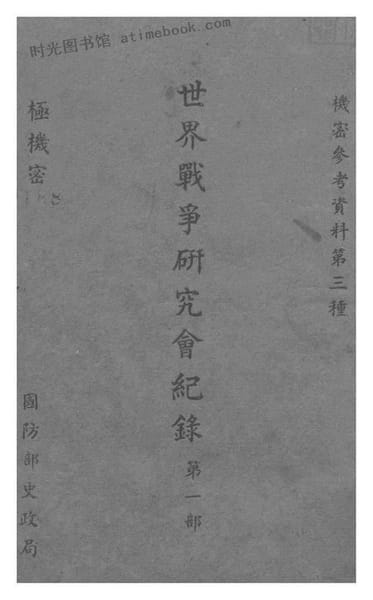 时光图书馆 atimebook.com
機密參考資料第三種
世界戰爭研究會紀錄 第一部
極機密
國防部史政局